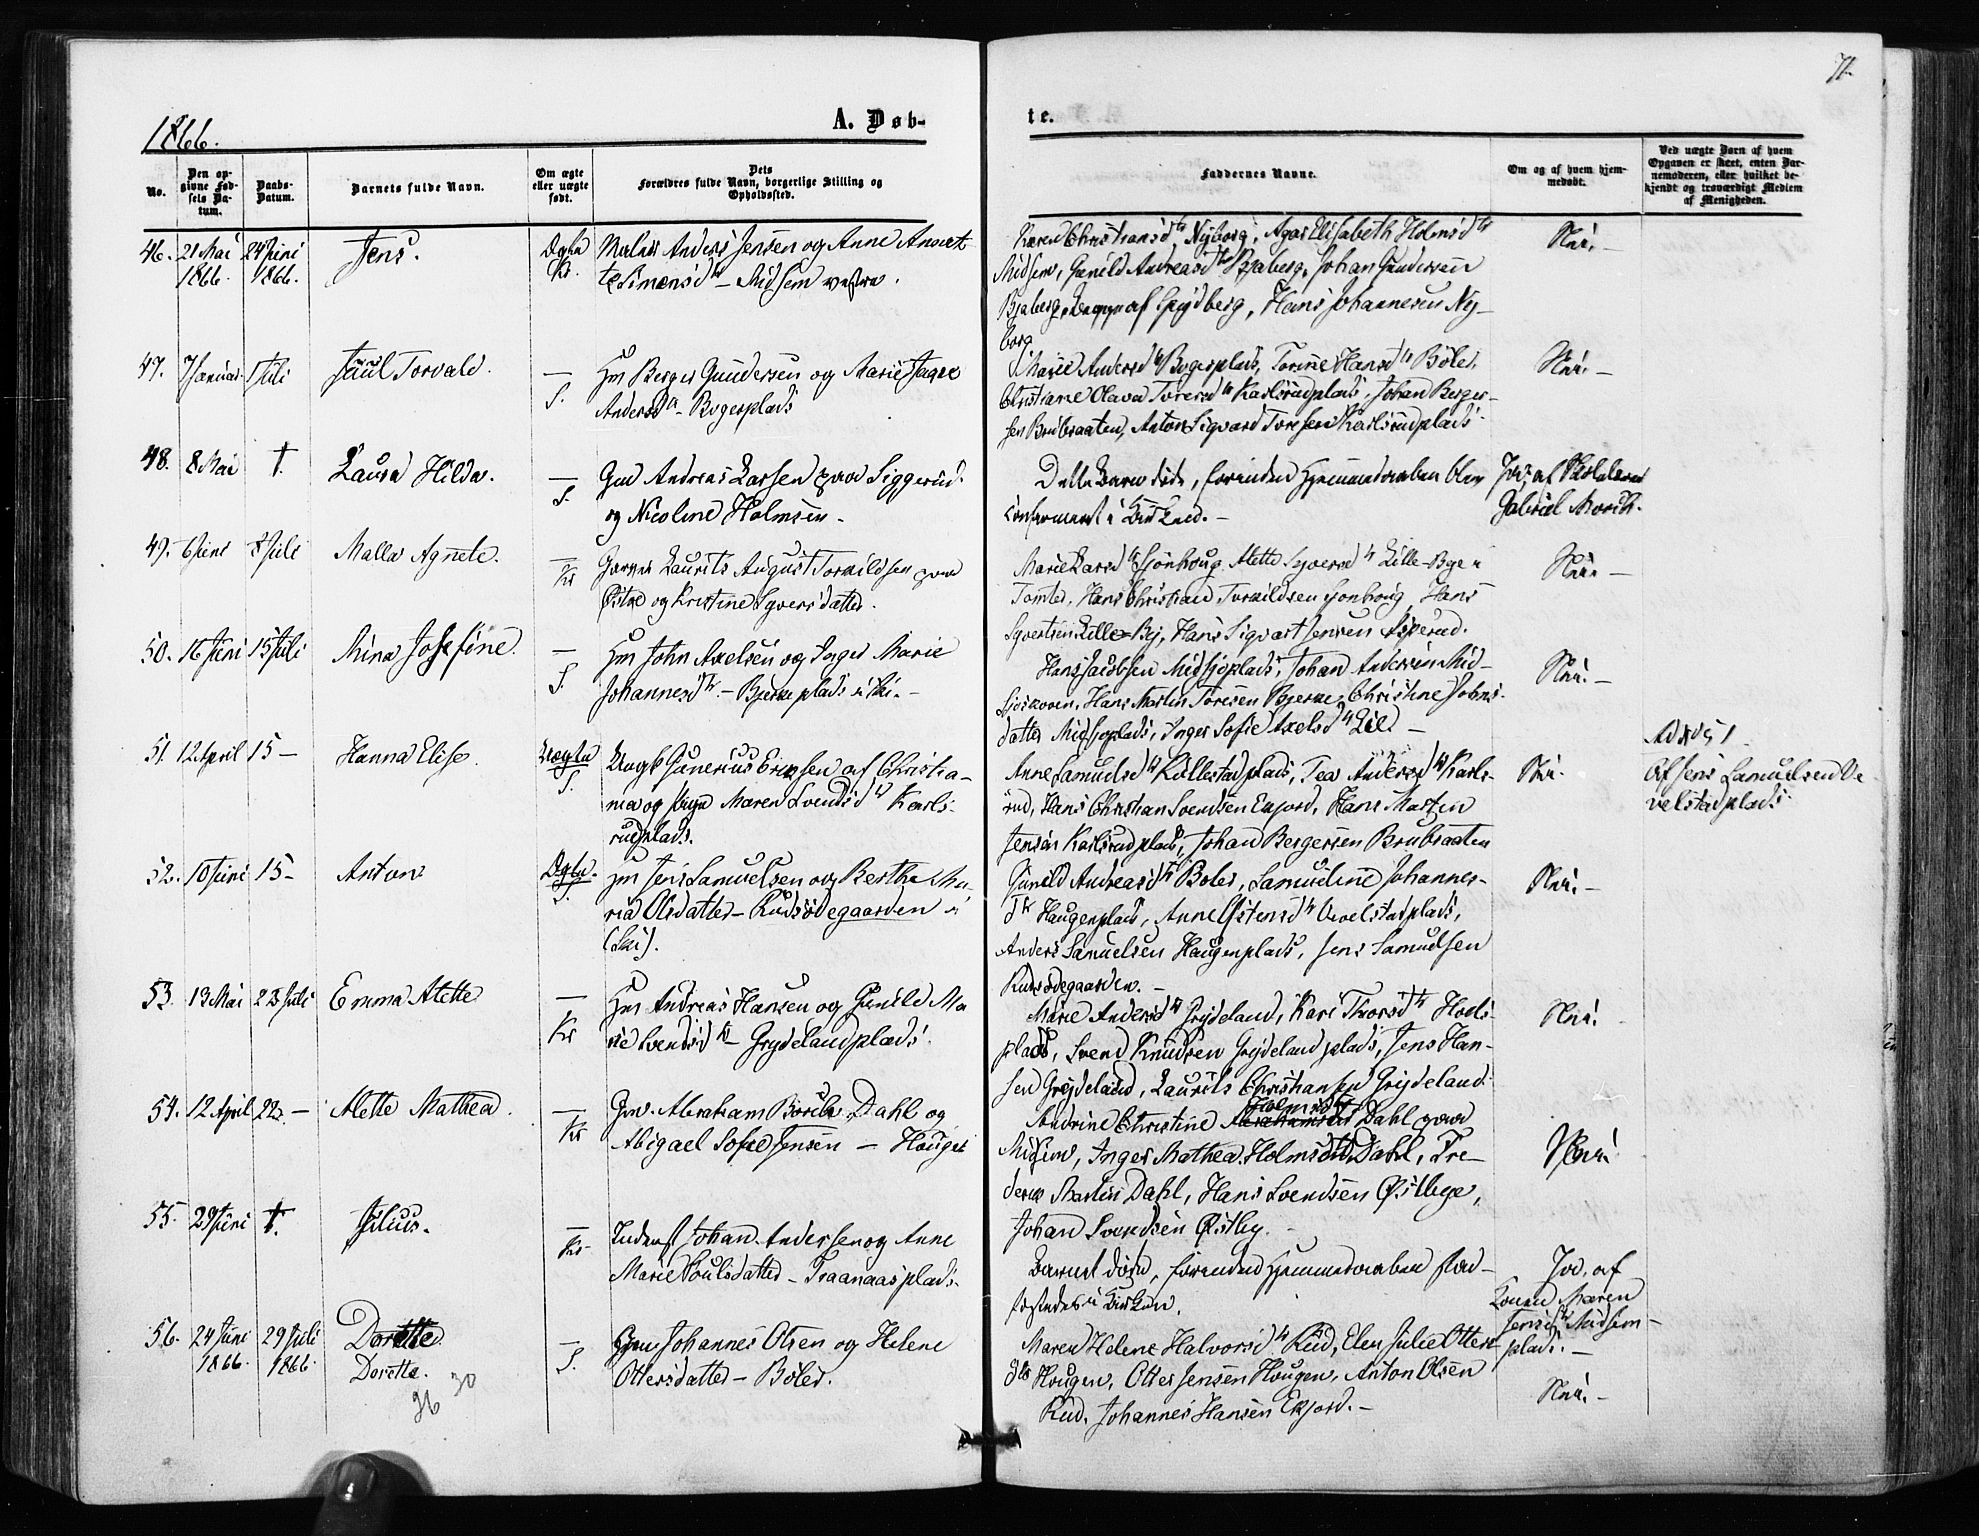 71.
1866.
A. Døb-
te.
No.
Den op-
givne Fød-
sels Da-
tum.
Daabs-
Datum.
Barnets fulde Navn.
Om ægte
eller uægte
født.
Dets
Forældres fulde Navn, borgerlige Stilling og
Opholdssted.
Faddernes Navne.
Om og af hvem hjem-
medøbt.
Ved uægte Børn af hvem
Opgaven er skeet, enten Bar-
nemoderen, eller hvilket be-
kjendt og troværdigt Medlem
af Menigheden.
46. 21 Mai 24 Juni Jens.
1866. 1866.
Anders Jensen og Anne
Simensd tr – Midsem vestre.
Karen Christiansd tr Nyborg, Elisabeth Holmsd tr
Midsem, Gunild Andreasd tr Bjaberg, Johan Gundersen
Bjaberg, af Spydberg, Hans Johannesen Ny-
borg
Nei. –
47. 7 Januar 1 Juli Juul Torvald.
– Hm Berger Gundersen og Marie
S. Andersd tr –
Marie Andersd tr Torine Hansd tr Bøler,
Christiane Olava Toresd tr Karlsrudplads, Johan Berger-
sen Brubraaten, Anton Sigvard Toresen Karlsrudplads
Nei. –
48. 8 Mai †. Laura Hilda.
– Gm Andreas Larsen Siggerud
S. og Nicoline Holmsen –
Dette Barn døde, forinden Hjemmedaaben blev
confirmeret i Kirken. –
Jo, af
Gabriel
49. 6 Juni 8 Juli Malla Agnete.
– Laurits August Torkildsen
Kr Østre og Kristine Syversdatter.
Marie Larsd tr Sjønhoug, Alette Syversd tr Lille-Bye i
Tomter, Hans Christian Torkildsen Sjonhoug, Hans
Syvertsen Lille-By, Hans Sigvart Jensen
Nei. –
50. 16 Juni 15 Juli Mina Josefine.
– Hm John Axelsen og Inger Marie
S. Johannesd tr – Bjerkeplads i Ski. –
Hans Jacobsen Midsjøplads, Johan Andersen Mid-
sjøskoven, Hans Martin Toresen Bjerke, Christine Johns-
datter Midsjøplads, Inger Sofie Axelsd tr –
Nei. –
51. 12 April 15 – Hanna Elise.
Uægte Ungk Gunerius Eriksen af Christia-
S. nia og Pige Maren Svendsd tr Karls-
rudplads.
Anne Samuelsd tr Kollestadplads, Tea Andersd tr Karls-
rud, Hans Christian Svendsen Ekjord, Hans Martin
Jensen Karlsrudplads, Johan Bergersen Brubraaten
Nei.
Ad No 51
Af Jens Samuelsen Ve-
velstadplads.
52. 10 Juni 15 – Anton
Ægte. Hm Jens Samuelsen og Berthe Ma-
S. ria Olsdatter – Rudsødegaarden i
(Ski).
Gunild Andreasd tr Boler, Samueline Johannes-
d tr Haugenplads, Anne Østensd tr Vevelstadplads,
Anders Samuelsen Haugenplads, Jens Samuelsen
Rudsødegaarden. –
Nei. –
53. 13 Mai 22 Juli Emma Alette
– Hm Andreas Hansen og Gunild Ma-
Kr rie Svendsd tr – Grydelandplads.
Marie Andersd tr Grydeland, Kari Thorsd tr
plads, Svend Knudsen Grydelandplads, Jens Han-
sen Grydeland, Laurits Christiansen Grydeland.
Nei.
54. 12 April 22 – Alette Mathea.
– Gm. Abraham Dahl og
Kr Abigael Sofie Jensen – Houger
Andrine Christine Holmsd tr Dahl
Midsem, Inger Mathea Holmsdtr Dahl, Fre-
derik Martin Dahl, Hans Svendsen Østbye,
Johan Svendsen Østby. –
Nei.
55. 29 Juni †. Julius.
– Inderst Johan Andersen og Anne
Kr Marie Poulsdatter – Traanaasplads.
Barnet døde, forinden Hjemmedaaben stad-
fæstedes i Kirken.
Jo, af
Konen Maren
Jensd tr Midsem-
plads. –
56. 24 Juni 29 Juli Dorette.
1866. 1866. Dorette.
– Gm Johannes Olsen og Helene
S. Ottersdatter – Bøler.
Maren Helene Halvorsd tr Rud, Elen Julie Otters-
dtr Hougen, Otter Jensen Hougen, Anton Olsen
Rud, Johannes Hansen Ekjord. –
Nei. –
26 30